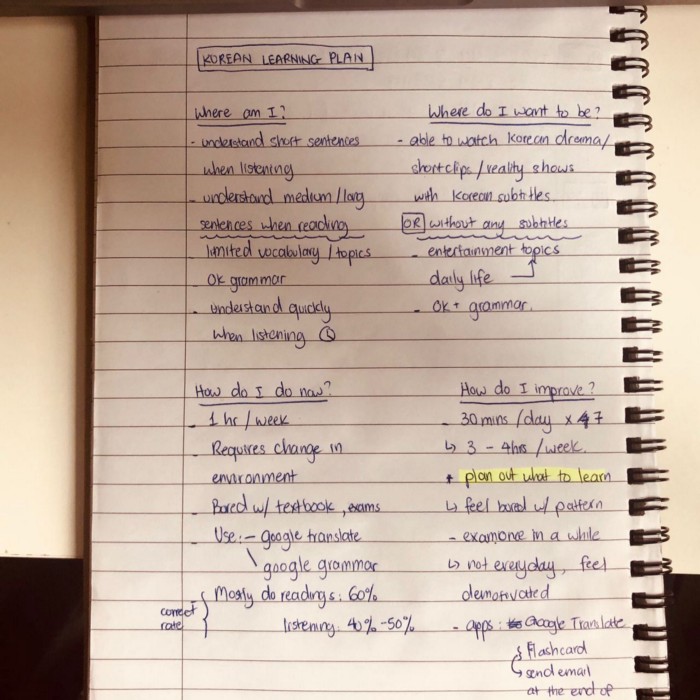 KOREAN LEARNING PLAN
Where am I?
- understand short sentences
when listening
- understand medium / long
sentences when reading
- limited vocabulary / topics
- OK grammar
- understand quickly
when listening
Where do I want to be?
- able to watch Korean drama /
short clips / reality shows
with Korean subtitles
OR without any subtitles
- entertainment topics
daily life
- OK+ grammar.
How do I do now?
- 1 hr / week
- Requires change in
environment
- Bored w/ textbook, exams
- Use: - google translate
google grammar
correct
rate
Mostly do readings: 60%
listening: 40% - 50%
How do I improve?
- 30 mins / day x 7
↳ 3 - 4hrs / week.
+ plan out what to learn
↳ feel bored w/ pattern
- exam once in a while
↳ not everyday, feel
demotivated
- apps: Google Translate
Flashcard
send email
at the end of